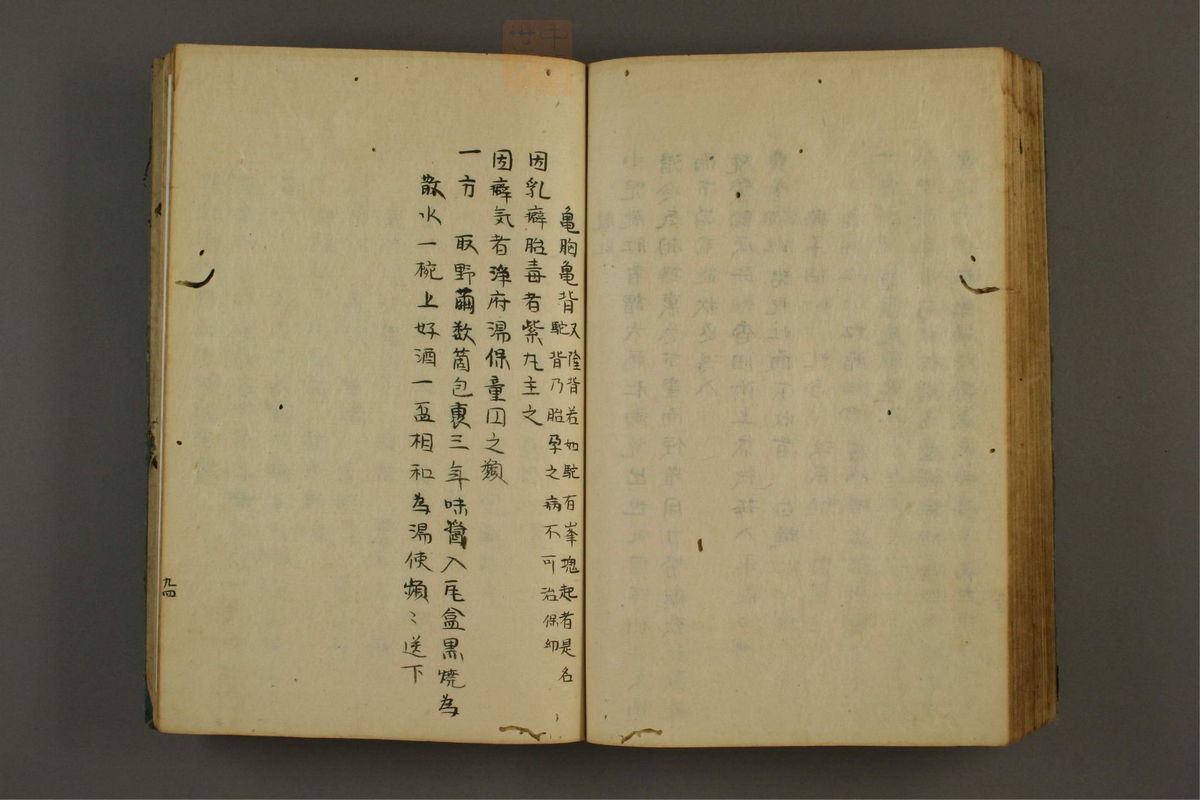 亀胸亀背又隆背若如駝有峯塊起者是名
駝背乃胎孕之病不可治保幼
因乳癖胎毒者紫丸主之
因癖気者浄府湯保童円之類
一方 取野繭数箇包裹三年味醤入瓦盒黒焼為
散水一椀上好酒一盃相和為湯使頻〻送下
九四